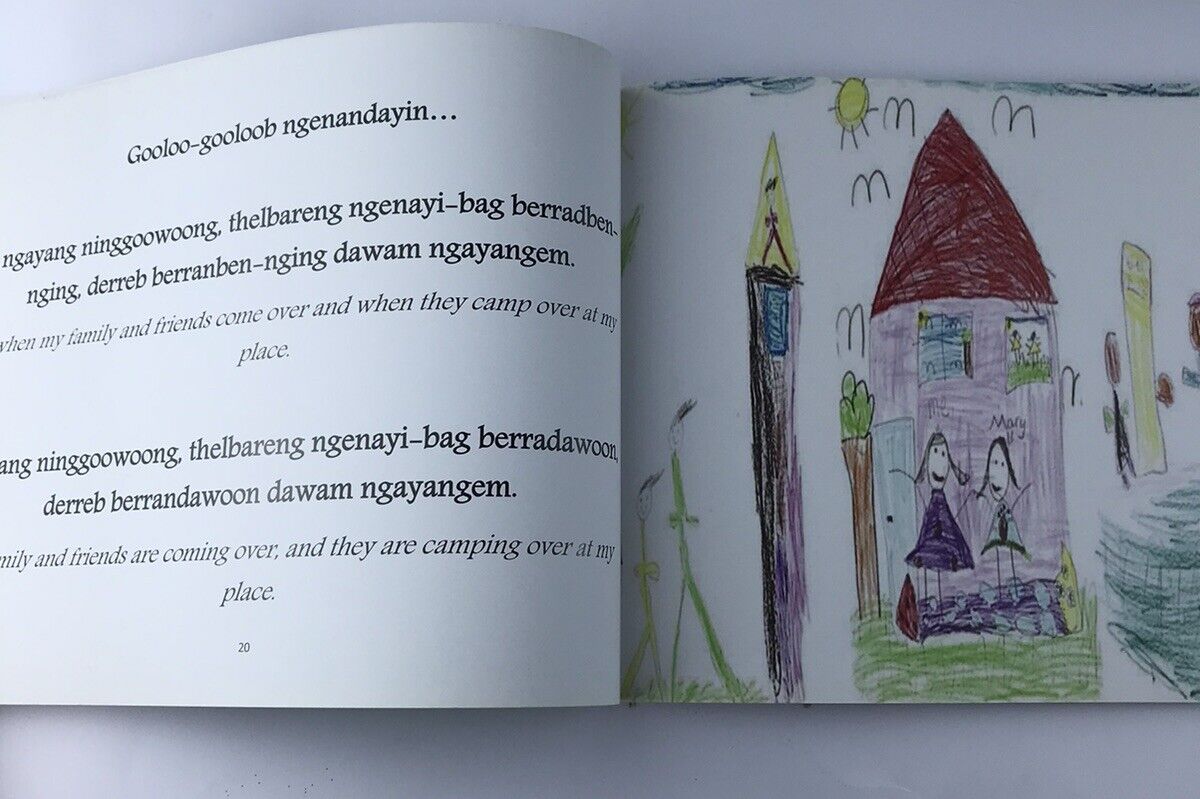 Gooloo-gooloob ngenandayin...
ngayang ninggoowoong, thelbareng ngenayi-bag berradben-
nging, derreb berranben-nging dawam ngayangem.
when my family and friends come over and when they camp over at my
place.
ang ninggoowoong, thelbareng ngenayi-bag berradawoon,
derreb berrandawoon dawam ngayangem.
mily and friends are coming over, and they are camping over at my
place.
20
me
Mary